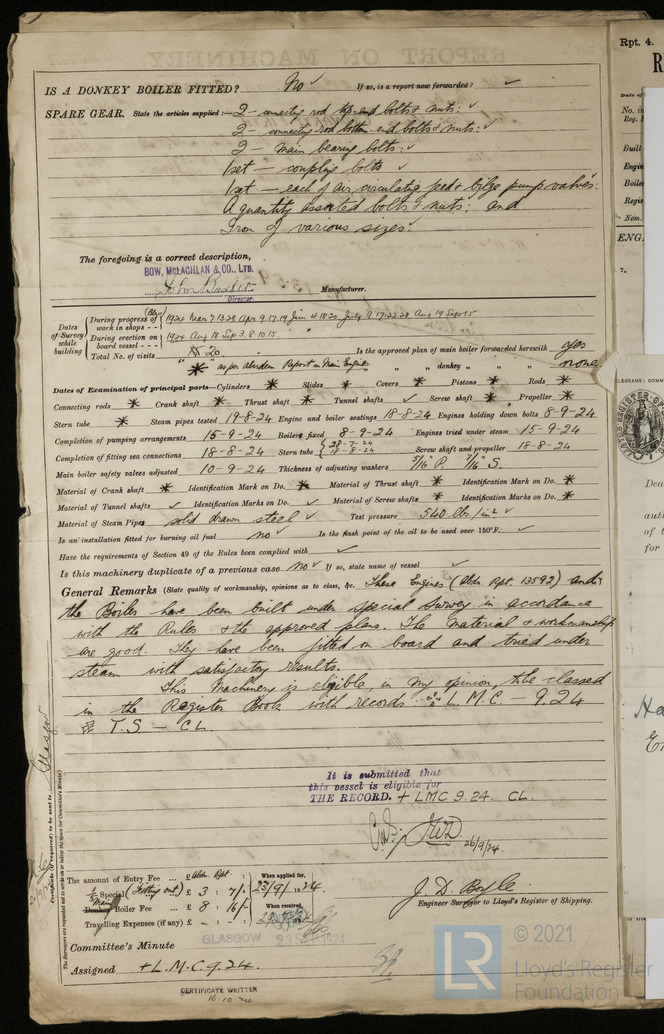 IS A DONKEY BOILER FITTED? No ✓ If so, is a report now forwarded? ✓
SPARE GEAR. State the articles supplied:— 2 - connecting rod top-end bolts & nuts: ✓
2 - connecting rod bottom-end bolts & nuts: ✓
2 - main bearing bolts: ✓
1 set — coupling bolts ✓
1 set — each of air, circulating, feed & bilge pump valves:
A quantity assorted bolts & nuts: and
Iron of various sizes.
The foregoing is a correct description,
BOW, McLACHLAN & CO., LTD.
Director. Manufacturer.
Dates of Survey while building
During progress of work in shops - - 1924 Mar 7.13.28 Apr 9.17.19 Jun 4.18.20 July 9.17.22.28 Aug 19 Sep 15
During erection on board vessel - - - 1924 Aug 18 Sep 3.8.10.15
Total No. of visits 20 Is the approved plan of main boiler forwarded herewith yes
* as per Aberdeen Report on Main Engines " " " donkey " " " none
Dates of Examination of principal parts—Cylinders * Slides * Covers * Pistons * Rods *
Connecting rods * Crank shaft * Thrust shaft * Tunnel shafts ✓ Screw shaft * Propeller *
Stern tube * Steam pipes tested 19-8-24 Engine and boiler seatings 18-8-24 Engines holding down bolts 8-9-24
Completion of pumping arrangements 15-9-24 Boilers fixed 8-9-24 Engines tried under steam 15-9-24
Completion of fitting sea connections 18-8-24 Stern tube 28-7-24 18-8-24 Screw shaft and propeller 18-8-24
Main boiler safety valves adjusted 10-9-24 Thickness of adjusting washers 5/16 P. 7/16 S.
Material of Crank shaft * Identification Mark on Do. * Material of Thrust shaft * Identification Mark on Do. *
Material of Tunnel shafts ✓ Identification Marks on Do. ✓ Material of Screw shafts * Identification Marks on Do. *
Material of Steam Pipes solid drawn steel ✓ Test pressure 540 lbs/in² ✓
Is an installation fitted for burning oil fuel no ✓ Is the flash point of the oil to be used over 150°F. ✓
Have the requirements of Section 49 of the Rules been complied with ✓
Is this machinery duplicate of a previous case no ✓ If so, state name of vessel ✓
General Remarks (State quality of workmanship, opinions as to class, &c. These Engines (Abdn. Rpt. 13592) and
the Boiler have been built under special survey in accordance
with the Rules & the approved plans. The material & workmanship
are good. They have been fitted on board and tried under
steam with satisfactory results.
This Machinery is eligible, in my opinion, to be classed
in the Register Book with records L.M.C. 9.24
T.S — CL.
It is submitted that
this vessel is eligible for
THE RECORD. + LMC 9.24. CL.
26/9/24.
Glasgow
Certificate (if required) to be sent to
(The Surveyors are requested not to write on or below the space for Committee's Minute)
The amount of Entry Fee ... £ Abdn. Rpt. When applied for,
1/2 Special (Fitting out) £ 3 : 7/- 23/9/1924.
Main Donkey Boiler Fee ... £ 8 : 16/- When received,
Travelling Expenses (if any) £ - : -
J. D. Boyle
Engineer Surveyor to Lloyd's Register of Shipping.
GLASGOW 23 SEP 1924
Committee's Minute
Assigned + L.M.C. 9.24.
CERTIFICATE WRITTEN
16.10.24
LR
© 2021
Lloyd's Register
Foundation
Rpt. 4.
Date of
No. in
Reg.
Built
Engin
Boiler
Regis
Nom.
ENG
7.
LEGRAMS: COMM
Dea
auth
of t
for